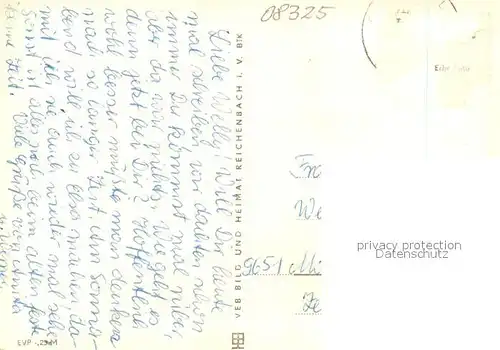 08325
Liebe Welly! Will Dir heute
mal schreiben, wir dachten schon
immer Du kommst mal rüber,
aber da war nichts. Wie geht es
denn jetzt bei Dir? Hoffentlich
wohl besser müßte man denken
nach so langer Zeit. Am Sonna-
bend will ich zu Elsa machen da-
mit ich sie auch wieder mal sehe
Sonst ist alles noch beim alten
keine Zeit. Viele Grüße von
VEB BILD UND HEIMAT REICHENBACH I. V. BTK
EVP
Fra
We
9651
privacy protection
Datenschutz